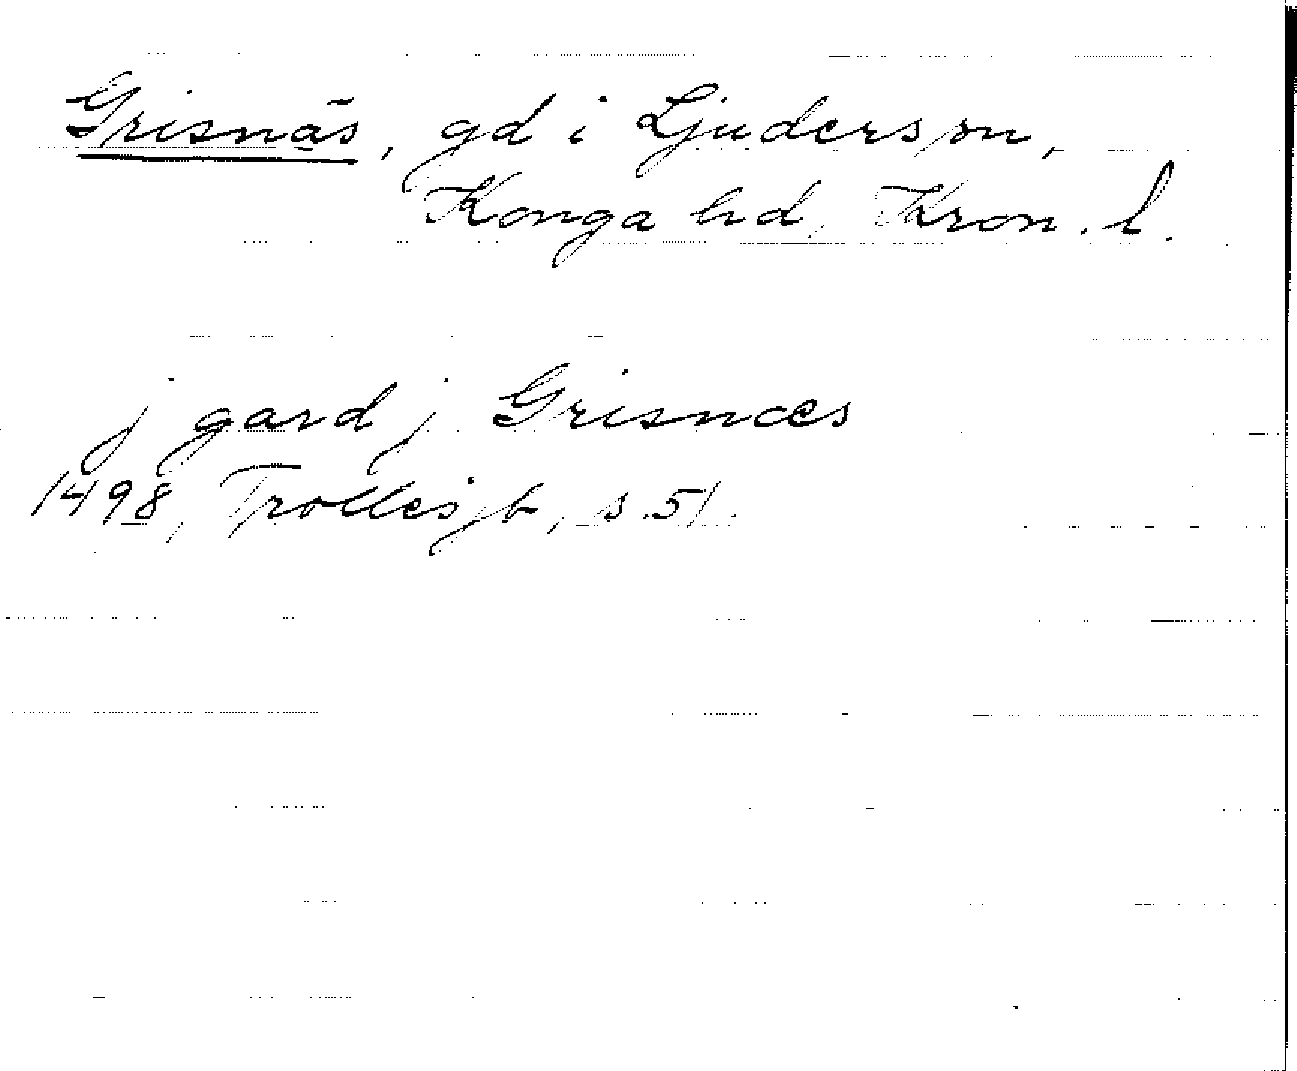 Grisnäs, gd i Ljuders sn,
Konga hd, Kron. l.
j gard j Grisnæs
1498, Trollesjb, s. 51.